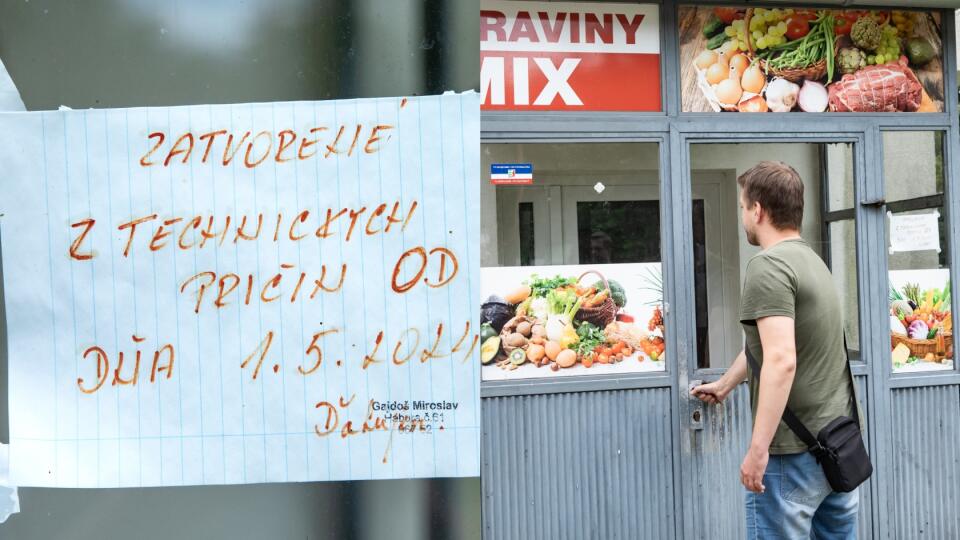 ZATVORENIE
Z TECHNICKÝCH
PRIČIN OD
DŇA 1.5.2024
Ďakujem.
Gajdoš Miroslav
Habura č.61
067 52
RAVINY
MIX